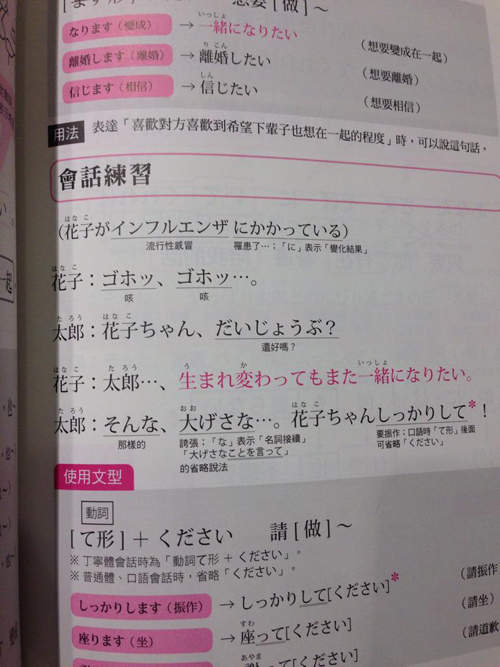 [ます形] 想要[做]～
いっしょ
なります（變成） → 一緒になりたい （想要變成在一起）
りこん
離婚します（離婚） → 離婚したい （想要離婚）
しん
信じます（相信） → 信じたい （想要相信）
用法 表達「喜歡對方喜歡到希望下輩子也想在一起的程度」時，可以說這句話，
會話練習
はなこ
（花子がインフルエンザ にかかっている）
流行性感冒 罹患了…；「に」表示「變化結果」
はなこ
花子：ゴホッ、ゴホッ…。
咳 咳
たろう はなこ
太郎：花子ちゃん、だいじょうぶ？
還好嗎？
はなこ たろう う か いっしょ
花子：太郎…、生まれ変わってもまた一緒になりたい。
たろう おお はなこ
太郎：そんな、大げさな…。花子ちゃんしっかりして*！
那樣的 誇張；「な」表示「名詞接續」 要振作；口語時「て形」後面
「大げさなことを言って」 可省略「ください」
的省略說法
使用文型
動詞
[て形]＋ください 請[做]～
※ 丁寧體會話時為「動詞て形 ＋ ください」。
※ 普通體、口語會話時，省略「ください」。
しっかりします（振作） → しっかりして[ください]* （請振作
すわ
座ります（坐） → 座って[ください] （請坐）
あやま
（請道歉